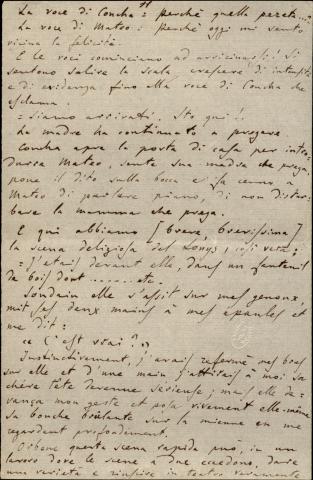 La voce di Concha: perchè quella pereta...?
La voce di Mateo: Perchè oggi mi sento
vicina la felicità.
E le voci cominciano ad avvicinarsi! Si
sentono salire la scala, crescere di intensità
e di evidenza fino alla voce di Concha che
esclama.
= Siamo arrivati. Sto qui!
La madre ha continuato a pregare
Concha apre la porta di casa per intro-
durre Mateo, sente sua madre che prega,
pone il dito sulla bocca e fa cenno a
Mateo di parlare piano, di non distur-
bare la mamma che prega.
E qui abbiamo [breve, brevissima]
la scena deliziosa del Louÿs, così vera;
= J'étais devant elle, dans un fauteuil
de bois dont ........ etc.
Soudain elle s'assit sur mes genoux,
mit ses deux mains à mes épaules et
me dit:
"C'est vrai?"
Instinctivement, j'avais refermé mes bras
sur elle et d'une main j'attirais à moi sa
chère tête devenue sérieuse; mais elle de-
vança mon geste et posa vivement elle-même
sa bouche brûlante sur la mienne en me
regardant profondément.
Orbene questa scena rapida può, in un
lavoro dove le scene a due eccedono, dare
una varietà e riuscire in teatro veramente